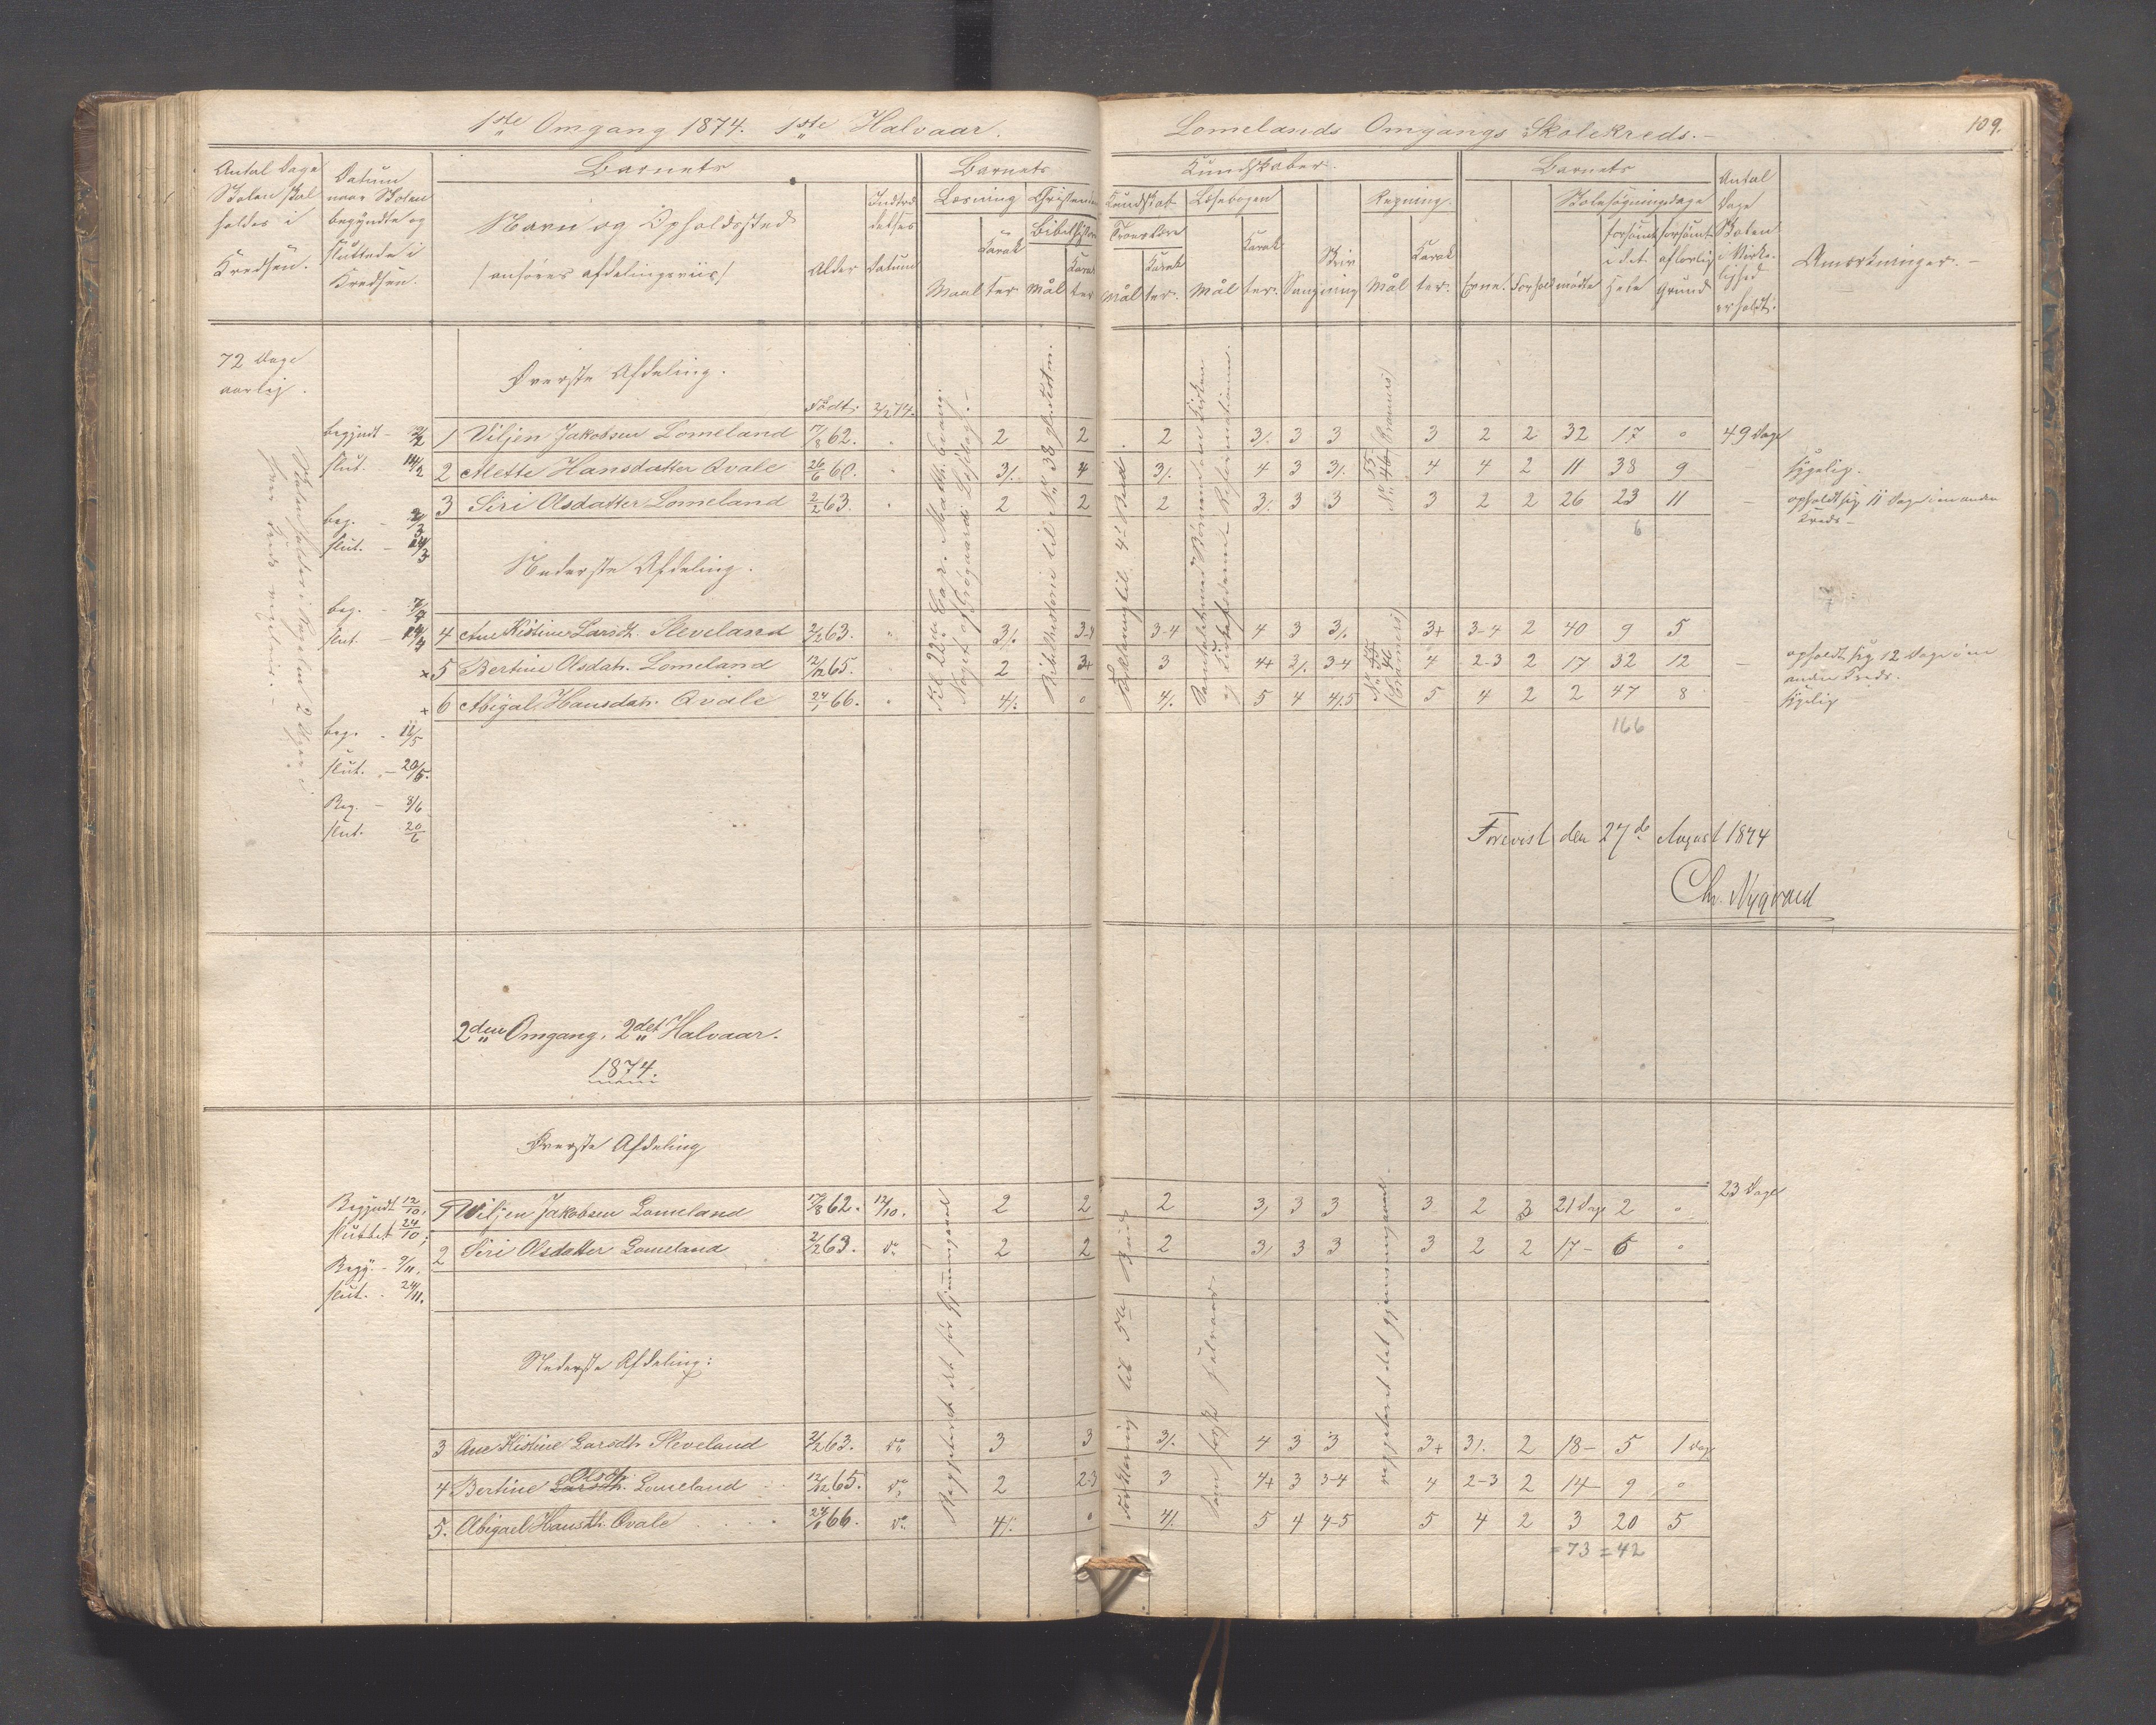 1ste Omgang 1874. 1ste Halvaar.
Lomelands Omgangs Skolekreds.
109.
Antal Dage Skolen skal holdes i Kredsen.
Datum naar Skolen begyndte og sluttede i Kredsen.
Barnets
Navn og Opholdssted
/anføres afdelingsviis/
Alder
Indtrædelses Datum
Barnets
Kundskaber.
Læsning
Maal
Karakter.
Christendom
Bibelhistorie
Mål
Karakter
Kundskab
Troeslære
Mål
Karakter.
Læsebogen
Mål
Karakter.
Sang
Skrivning
Regning.
Mål
Karakter.
Barnets
Evne.
Forhold
Skolesøgningsdage
mødte
forsømt i det Hele
forsømt af lovlig Grund
Antal Dage Skolen i Virkelighed er holdt.
Anmærkninger.
72 Dage
aarlig.
Øverste Afdeling.
Født: 2/2 74.
begyndt - 2/2 1 Viljen Jakobsen Lomeland 17/8 62. 2 2 2 3/. 3 3 3 2 2 32 17 0 49 Dage
slut. 14/2 2 Mette Hansdatter Qvale 26/6 60. 3/. 4 3/. 4 3 3/. 4 4 2 11 38 9 sygelig.
3 Siri Olsdatter Lomeland 2/2 63. 2 2 2 3/. 3 3 3 2 2 26 23 11 opholdt sig 11 Dage i en anden
Kreds
6
beg. - 9/3
slut. - 24/3
Nederste Afdeling.
beg. - 7/4
slut. - 14/4 4 Ane Kistine Larsdt. Sleveland 2/2 63. 3/. 3-4 3-4 4 3 3/. 3+ 3-4 2 40 9 5
5 Bertine Olsdatr. Lomeland 12/12 65. 2 3+ 3 4+ 3/. 3-4 4 2-3 2 17 32 12 opholdt sig 12 Dage i en
anden Kreds.
6 Abigal Hansdatr. Qvale 24/1 66. 4/. 0 4/. 5 4 4/.5 5 4 2 2 47 8 sygelig
166
beg. - 11/5
slut. - 20/5.
Beg. - 8/6
slut. 20/6
Til 22de Cap. Matth. Evang.
Bibelhistorie til No 38
Forklaring til 4de Bud
No 46
Forevist den 27de August 1874
Chr. Nygaard
2den Omgang, 2det Halvaar.
1874.
Øverste Afdeling
Begyndt 12/10; 1 Viljen Jakobsen Lomeland 17/8 62. 12/10. 2 2 2 3/ 3 3 3 2 2 21 Dage 2 0 23 Dage
sluttet 24/10; 2 Siri Olsdatter Lomeland 2/2 63. Do 2 2 2 3/ 3 3 3 2 2 17 - 6 0
Begy. - 9/11.
slut. - 24/11.
Nederste Afdeling:
3 Ane Kistine Larsdtr. Sleveland 2/2 63. Do 3 3 3/. 4 3 3 3+ 3/. 2 18 - 5 1 Dag
4 Bertine Olsdtr. Lomeland 12/12 65. Do 2 2-3 3 4+ 3 3-4 4 2-3 2 14 9 0
5. Abigael Hansdtr. Qvale 24/1 66. Do 4/. 0 4/. 5 4 4-5 5 4 2 3 20 5
= 73 = 42
Reppeteret det før gjennemgaaed
Forklaring til 5te Bud
Som første Halvaar
reppeteret det gjennemgaaed